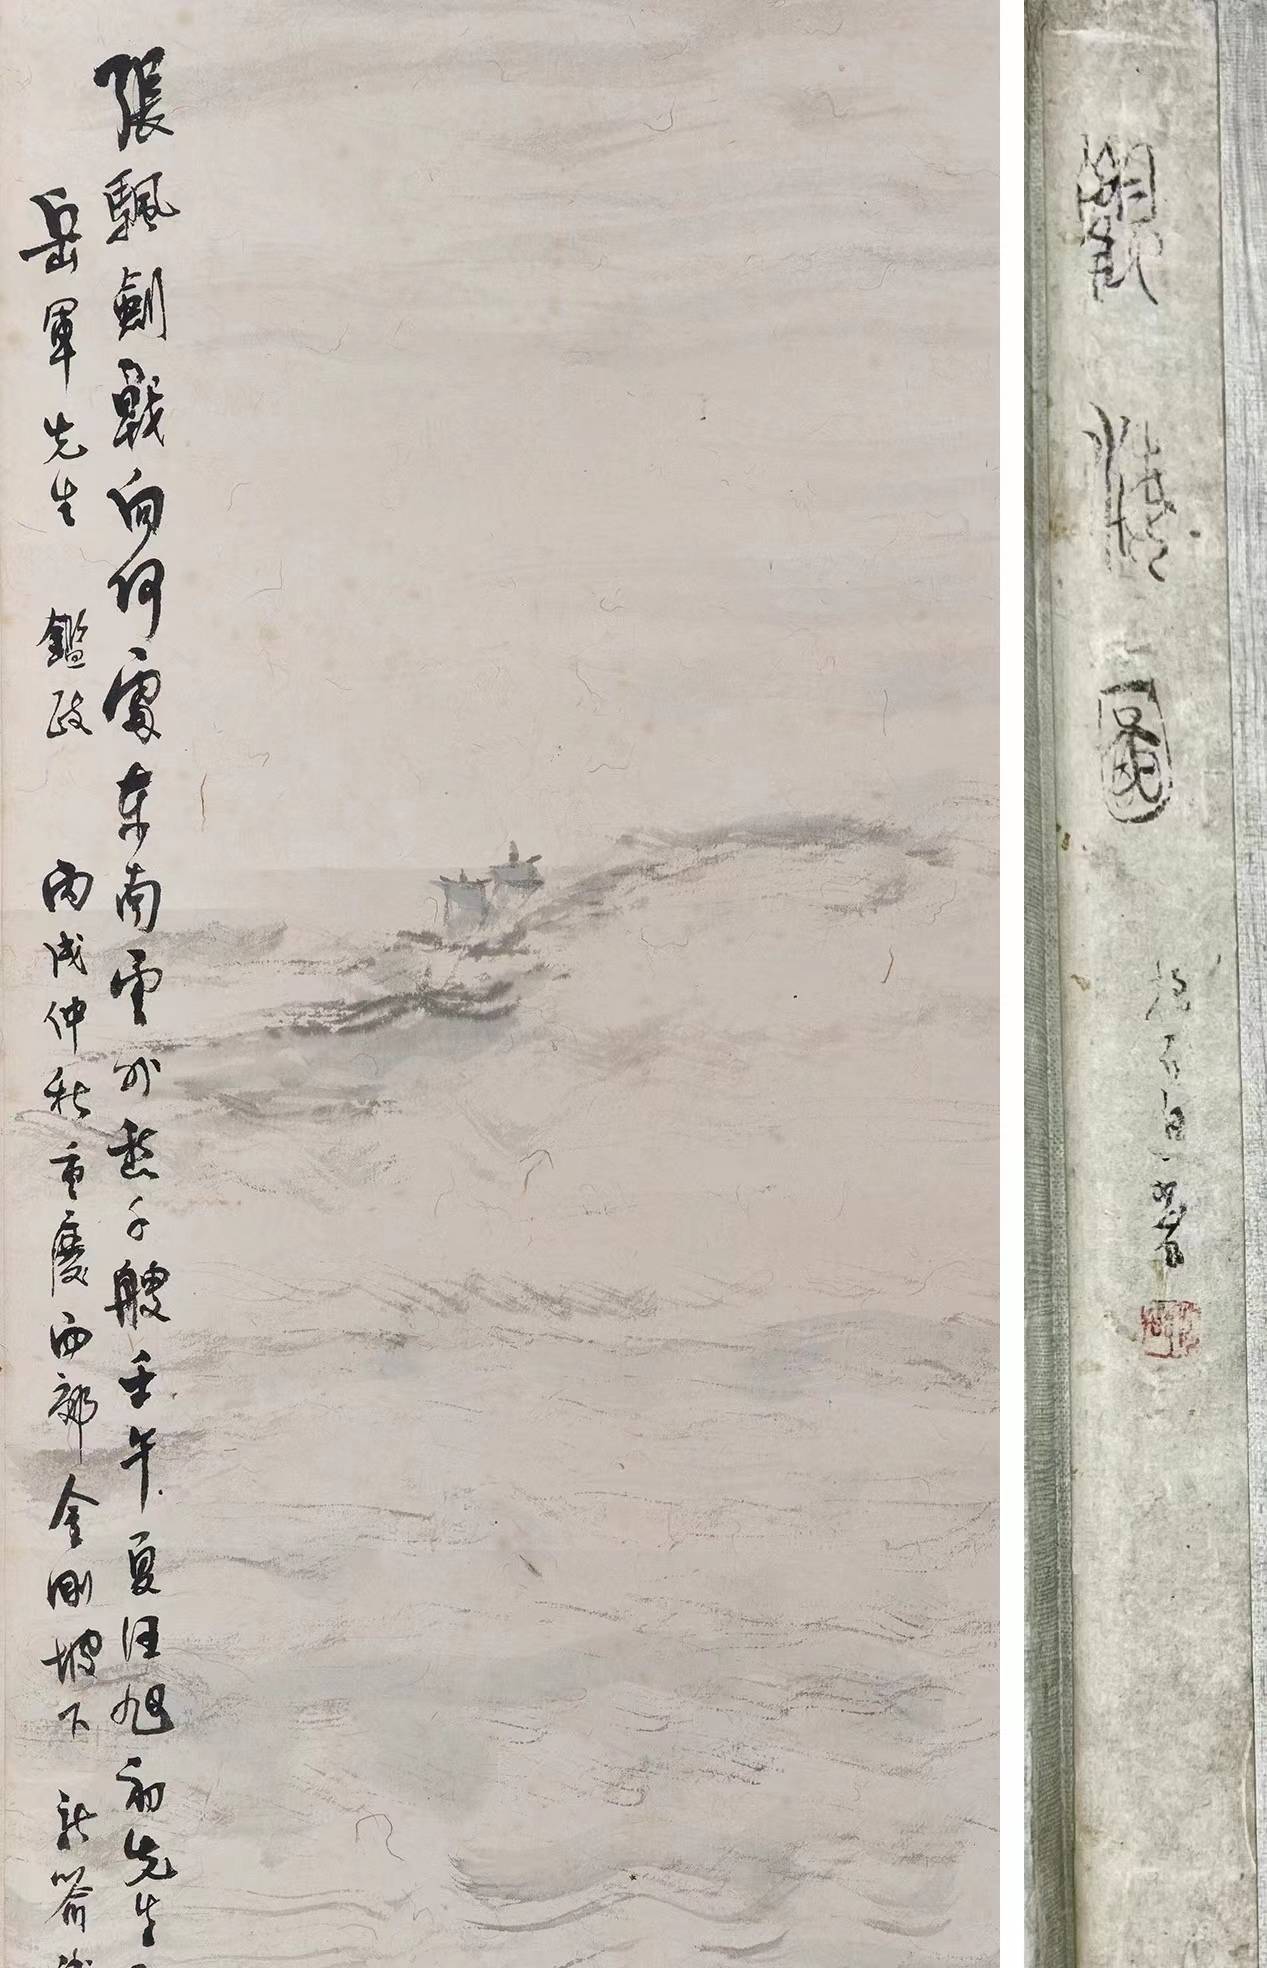 張颿劍戰向何處東南雲外愁千艘壬午夏汪旭初先生
岳軍先生 鑑政 丙戌仲秋重慶西郊金剛坡下 新喻
觀圖
抱石自署